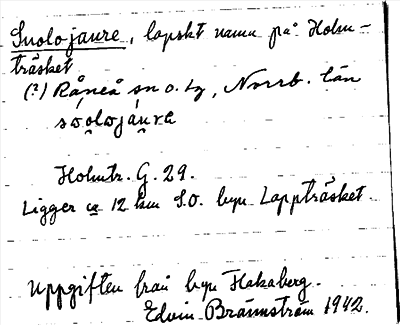 Suolojaure, lapskt namn på Holm-
träsket
(?) Råneå sn o. tg, Norrb. län
Holmtr. G. 29.
Ligger ca 12 km S.O. byn Lappträsket.
Uppgiften från byn Hakaberg.
Edvin Brännström 1942.